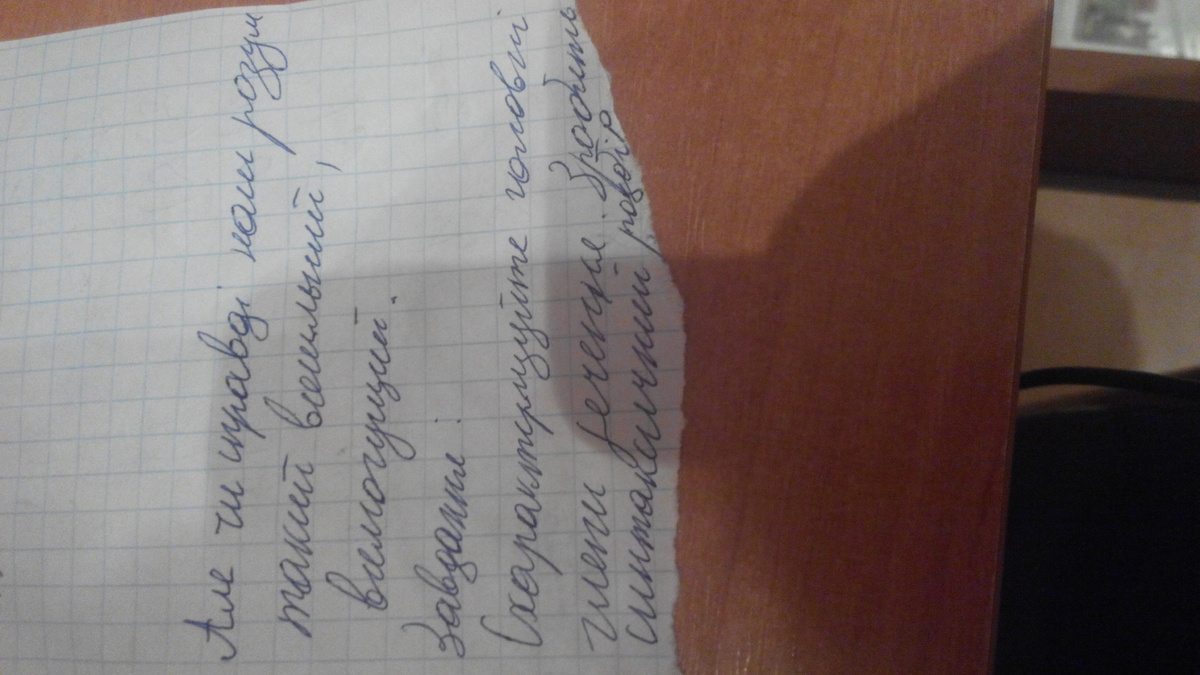 Але чи справді наш розум
такий всесильний,
всемогущий.
Завдання:
Схарактеризуйте головні
члени речення. Зробіть
синтаксичний розбір